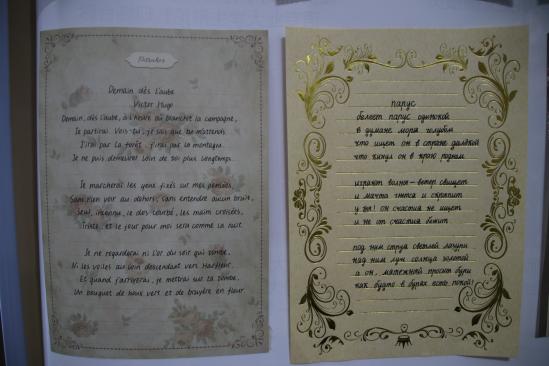 Demain, dès l'aube
Victor Hugo
Demain, dès l'aube, à l'heure où blanchit la campagne,
Je partirai. Vois-tu, je sais que tu m'attends.
J'irai par la forêt, j'irai par la montagne.
Je ne puis demeurer loin de toi plus longtemps.
Je marcherai les yeux fixés sur mes pensées,
Sans rien voir au dehors, sans entendre aucun bruit,
Seul, inconnu, le dos courbé, les mains croisées,
Triste, et le jour pour moi sera comme la nuit.
Je ne regarderai ni l'or du soir qui tombe,
Ni les voiles au loin descendant vers Harfleur,
Et quand j'arriverai, je mettrai sur ta tombe,
Un bouquet de houx vert et de bruyère en fleur.
парус
белеет парус одинокой
в тумане моря голубом
что ищет он в стране далёкой
что кинул он в краю родном
играют волны - ветер свищет
и мачта гнётся и скрипит
увы! он счастия не ищет
и не от счастия бежит
под ним струя светлей лазури
над ним луч солнца золотой
а он, мятежный, просит бури
как будто в бурях есть покой!